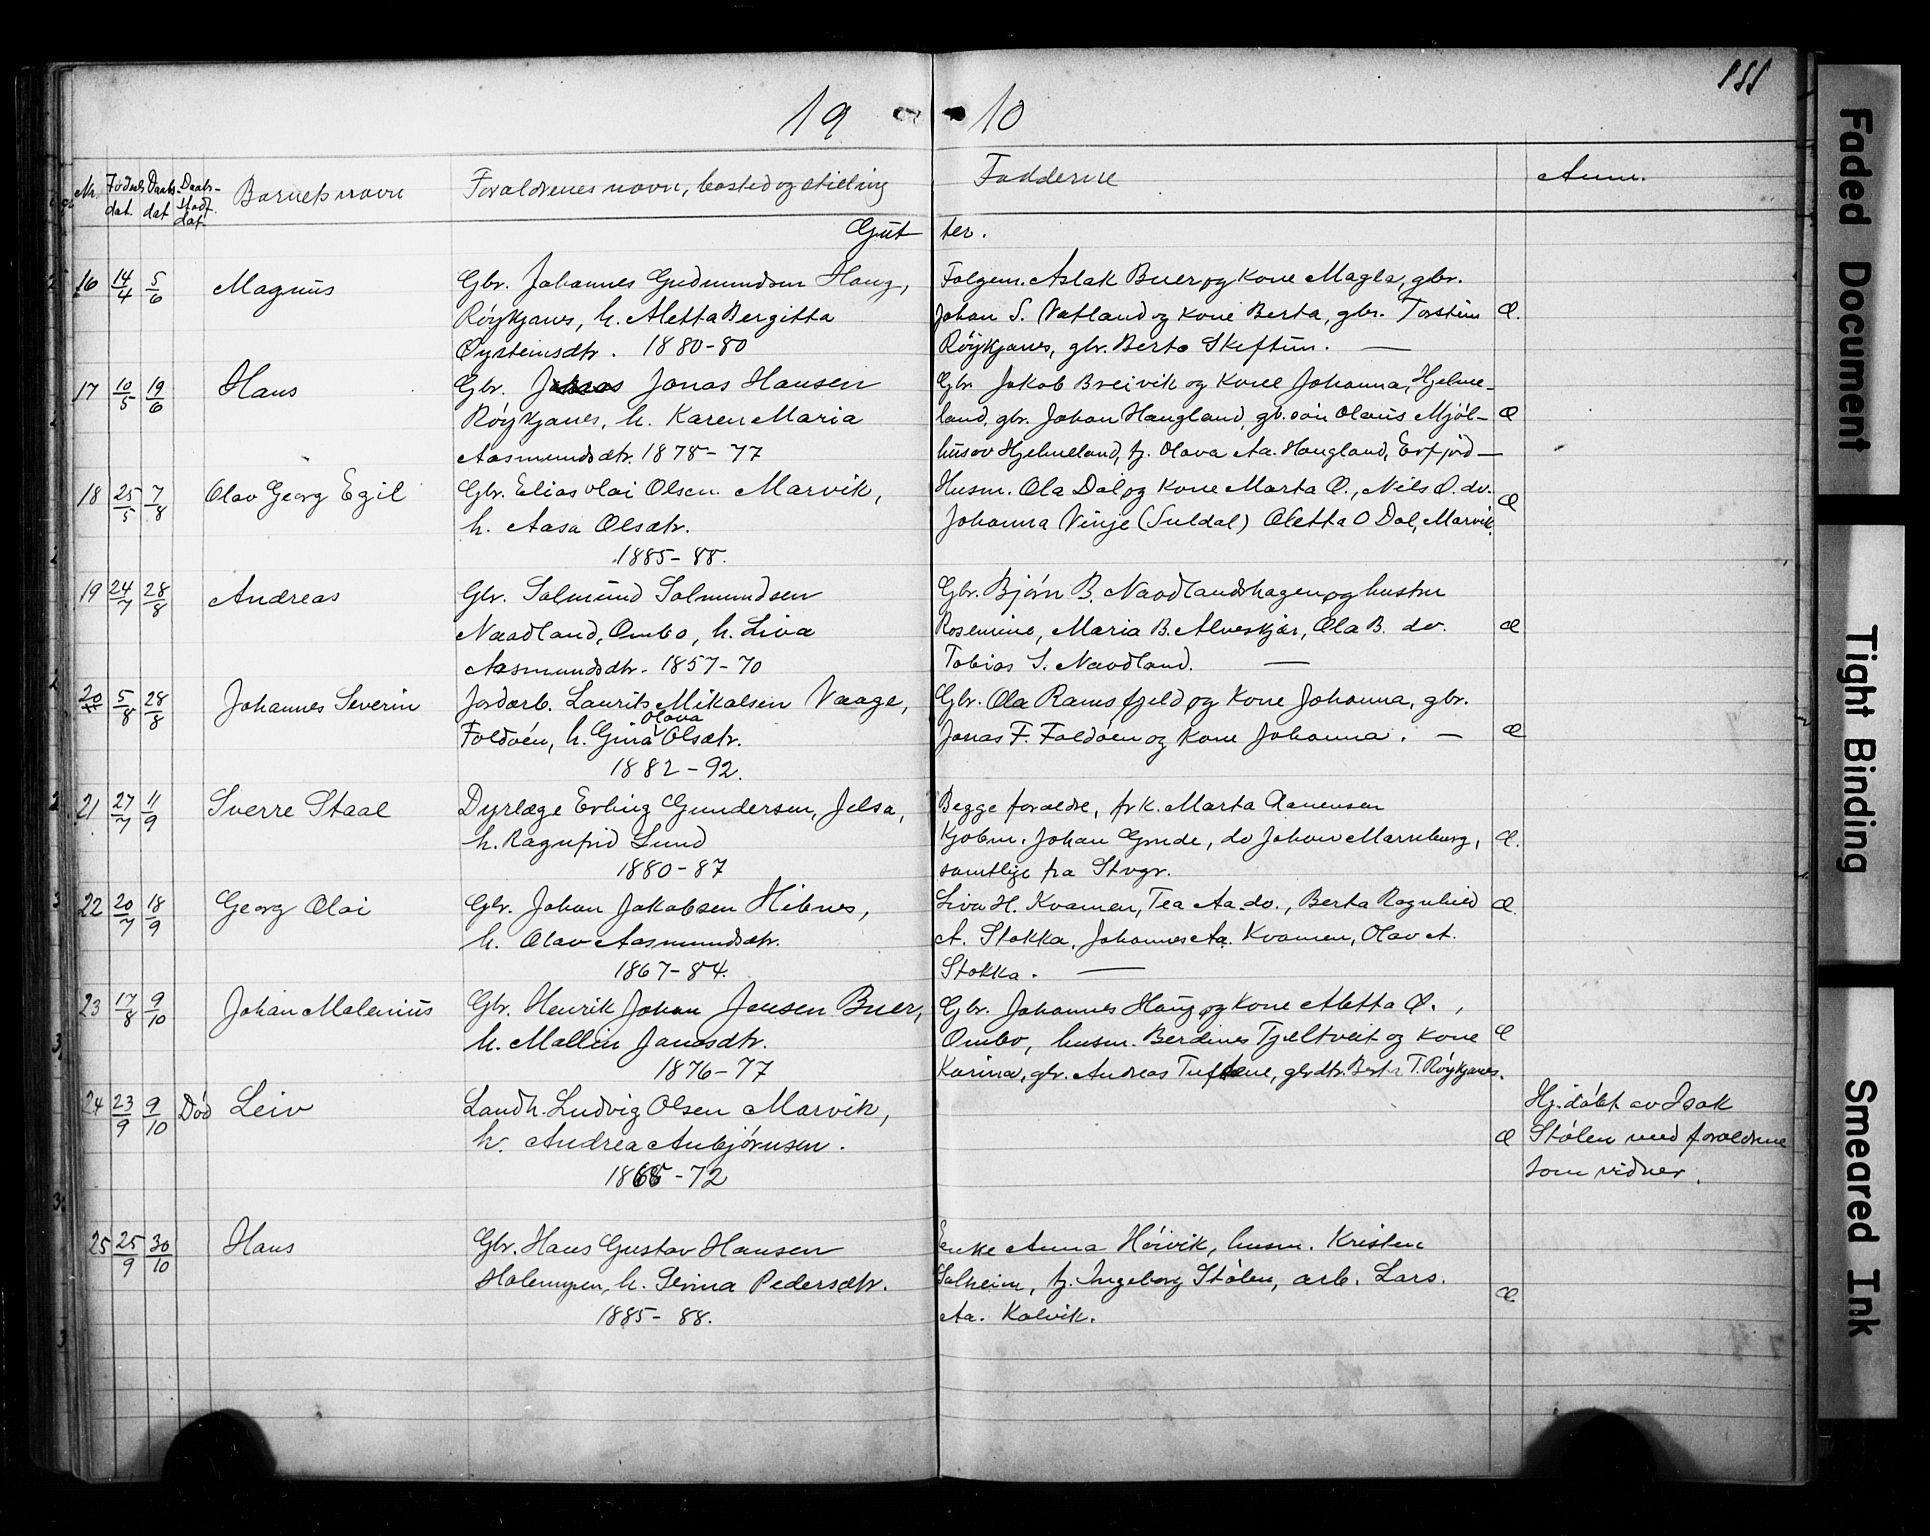 111
19 10
Nr. Fødsels dat. Daabs dat. Daabs-stadf. dat. Barnets navn Forældrenes navn, bosted og stilling Faddere Anm.
Gut ter.
16 14/4 5/6 Magnus Gbr. Johannes Gudmundsen Haug, Folgem. Aslak Buer og kone Magla, gbr.
Røykjanes, h. Aletta Bergitta Johan S. Vatland og kone Berta, gbr. Torstein Æ.
Øysteinsdtr. 1880-80 Røykjanes, gbr. Berta Skiftun. —
17 10/5 19/6 Hans Gbr. Jonas Hansen Gbr. Jakob Breivik og kone Johanna, Hjelme-
Røykjanes, h. Karen Maria land, gbr. Johan Haugland, gb. søn Olaus Mjøl- Æ
Aasmundsdtr. 1878-77 husav Hjelmeland, tj. Olava Aa. Haugland, Erfjord —
18 25/5 7/8 Olav Georg Egil Gbr. Elias Olai Olsen Marvik, Husm. Ola Dal og kone Marta O., Nils O. do. Æ
h. Aasa Olsdtr. Johanna Vinje (Suldal) Oletta O Dal, Marvik.
1885-88.
19 24/7 28/8 Andreas Gbr. Salmund Salmundsen Gbr. Bjørn B. Naadlandshagen og hustru
Naadland, Ombo, h. Liva Rosemine, Maria B. Alveskjær, Ola B. do. Æ
Aasmundsdtr. 1857-70 Tobias S. Naadland. —
20 5/8 28/8 Johannes Severin Jordarb. Laurits Mikalsen Vaage, Gbr. Ola Ramsfjeld og kone Johanna, gbr.
Foldøen, h. Gina Olava Olsdtr. Jonas F. Foldøen og kone Johanna. — Æ
1882-92.
21 27/7 11/9 Sverre Staal Dyrlæge Erling Gundersen, Jelsa, Begge forældre, frk. Marta Aanensen
h. Ragnfrid Lund Kjøbm. Johan Gjude, do Johan Marneburg, Æ.
1880-87 samtlige fra Stvgr.
22 20/7 18/9 Georg Olai Gbr. Johan Jakobsen Hibnes, Liva H. Kvamen, Tea Aa. do., Berta Ragnhild Æ.
h. Olav Aasmundsdtr. A. Stokka, Johannes Aa. Kvamen, Olav A.
1867-84. Stokka. —
23 17/8 9/10 Johan Malenius Gbr. Henrik Johan Jensen Buer, Gbr. Johannes Haug og kone Aletta Ø.,
h. Mallin Jansdtr. Ombo, husm. Berdines Tjeltveit og kone Æ
1876-77 Karina, gbr. Andreas Tuftene, gbrdtr. Berta T. Røykjanes.
24 23/9 9/10 Død Leiv Landh. Ludvig Olsen Marvik, Hj. døbt av Isak
h. Andrea Anbjørnsen. Æ Stølen med forældrene
1868-72 som vidner.
25 25/9 30/10 Hans Gbr. Hans Gustav Hansen Enke Anna Høivik, husm. Kristen
Halemyren, h. Serina Pedersdtr. Solheim, tj. Ingeborg Stølen, arb. Lars. Æ
1885-88. Aa. Kalvik.
Faded Document
Tight Binding
Smeared Ink